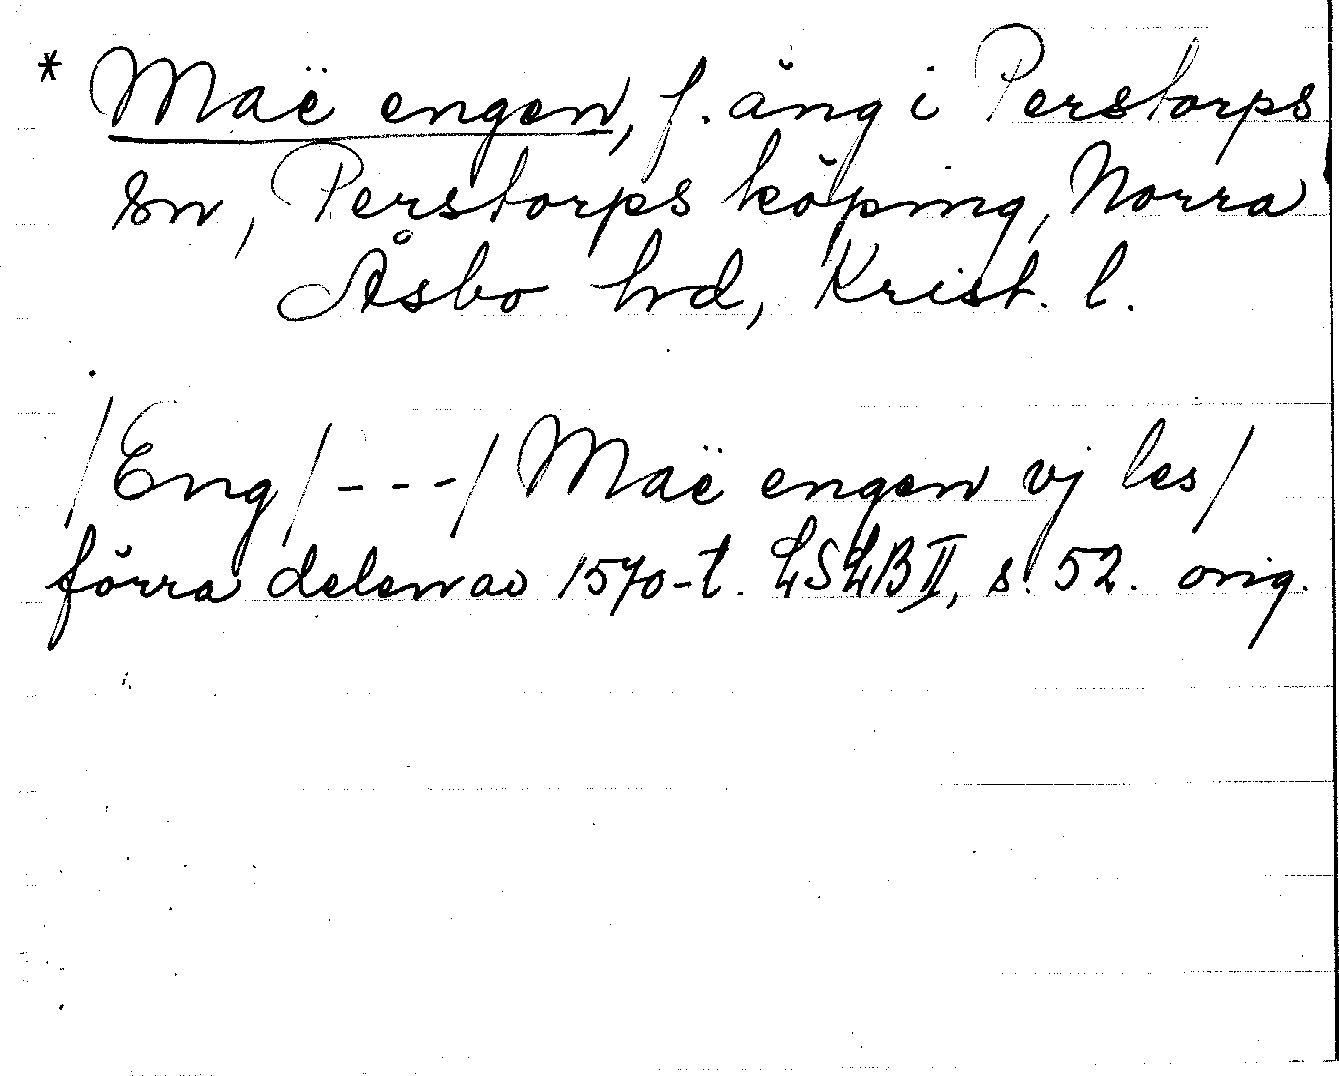 * Maë engen, f. äng i Perstorps
sn, Perstorps köping, Norra
Åsbo hrd, Krist. l.
/Eng/---/ Maë engen vj les/
förra delen av 1570-t. LSLB II, s. 52. orig.